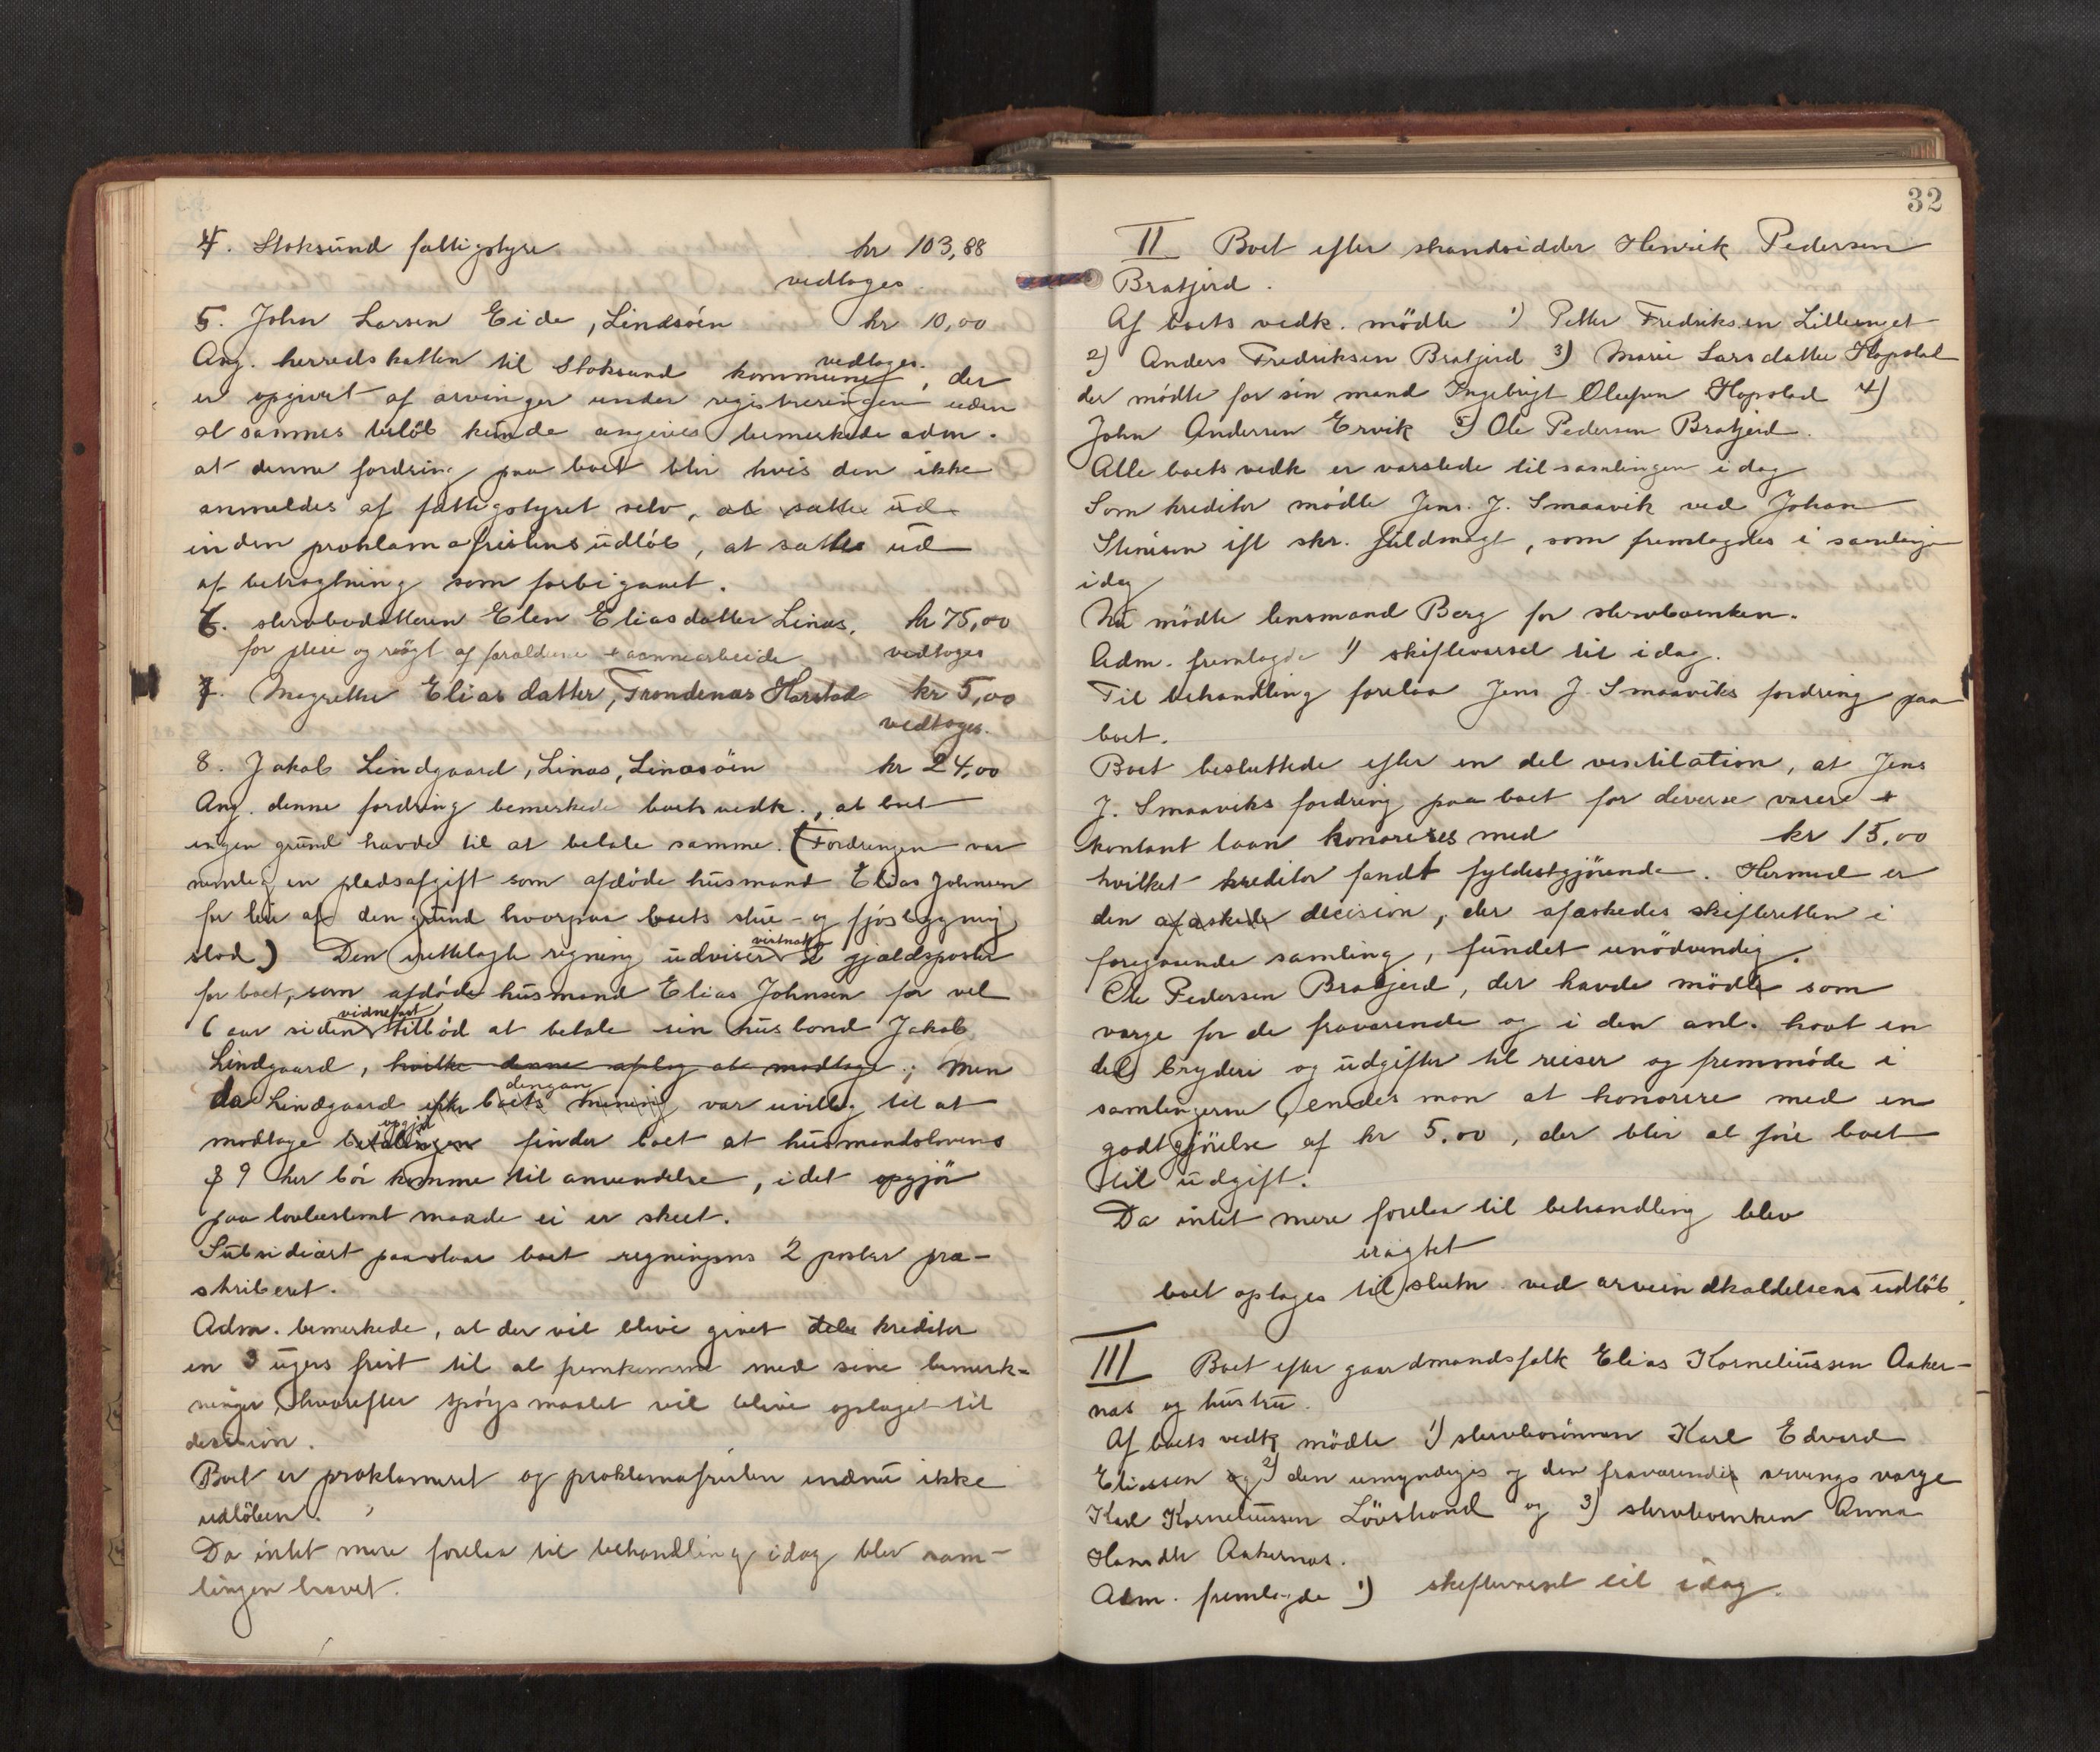 4. Stoksund fattigstyre kr 103,88
vedtoges.
5. John Larsen Eide, Lindsöen kr 10,00
vedtoges.
Ang. herredskatten til Stoksund kommune, der
er opgivet af arvinger under registreringen uden
at sammes belöb kunde angives bemerkede adm.
at denne fordring paa boet blir hvis den ikke
anmeldes af fattigstyret selv, at sætte ud
inden proklamafristens udlöb, at sættes ud
af betragtning som forbigaaet.
6. stervbodatteren Elen Eliasdatter Linæs. kr 75,00
for pleie og rögt af forældrene + aannearbeide vedtoges
7. Magrethe Eliasdatter, Trondenæs Harstad kr 5,00
vedtoges.
8. Jakob Lindgaard, Linæs, Linæsöen kr 24,00
Ang. denne fordring bemerkede boets vedk., at boet
ingen grund havde til at betale samme. (Fordringen var
nemlig en pladsafgift som afdöde husmand Elias Johnsen
for leie af den grund hvorpaa boets stue- og fjösbygning
stod.) Den irettelagte regning udviser 2 gjældsposter
for boet, som afdöde husmand Elias Johnsen for vel
vidnefast
6 aar siden tilböd at betale sin husbond Jakob
Lindgaard, hvilke denne afslog at modtage; Men
dengang
da Lindgaard efter boets mening var uvillig til at
opgjör
modtage betalingen finder boet at husmandslovens
§ 9 her bör komme til anvendelse, idet opgjör
paa lovbestemt maade ei er skeet.
Subsidiært paastaar boet regningens 2 poster præ-
skriberet.
Adm. bemerkede, at der vil blive givet kreditor
en 3 ugers frist til at fremkomme med sine bemerk-
ninger, hvorefter spörgsmaalet vil blive optaget til
decision.
Boet er proklameret og proklamafristen endnu ikke
udlöben.
Da intet mere forelaa til behandling idag blev sam-
lingen hævet.
32
II Boet efter strandsidder Henrik Pedersen
Bratjerd.
Af boets vedk. mödte 1) Petter Fredriksen Lilleenget
2) Anders Fredriksen Bratjerd 3) Marie Larsdatter Hopstad
der mödte for sin mand Ingebrigt Olufsen Hopstad 4)
John Andersen Ervik 5) Ole Pedersen Bratjerd.
Alle boets vedk er varslede til samlingen idag
Som kreditor mödte Jens. J. Smaavik ved Johan
Stenisen ifl skr. fuldmagt, som fremlagdes i samlingen
idag
Nu mödte lensmand Berg for stervboenken.
Adm. fremlagde 1) skiftevarsel til idag.
Til behandling forelaa Jens J. Smaaviks fordring paa
boet.
Boet besluttede efter en del ventilation, at Jens
J. Smaaviks fordring paa boet for diverse varer +
kontant laan honoreres med kr 15,00
hvilket kreditor fandt fyldestgjörende. Hermed er
den afæskede decision, der afæskedes skifteretten i
foregaaende samling, fundet unödvendig.
Ole Pedersen Bratjerd, der havde mödt som
værge for de fraværende og i den anl. havt en
del bryderi og udgifter til reiser og fremmöde i
samlingerne, enedes man at honorere med en
godtgjörelse af kr 5,00, der blir at före boet
til udgift.
Da intet mere forelaa til behandling blev
eragtet
boet optages til slutn. ved arveindkaldelsens udlöb.
III Boet efter gaardmandsfolk Elias Korneliussen Aaker-
næs og hustru.
Af boets vedk mödte 1) stervbosönnen Karl Edvard
Eliassen og 2) den umyndiges og den fraværendes arvings værge
Karl Korneliussen Lövstrand og 3) stervboenken Anna
Hansdtr Aakernæs.
Adm. fremlagde 1) skiftevarsel til idag.